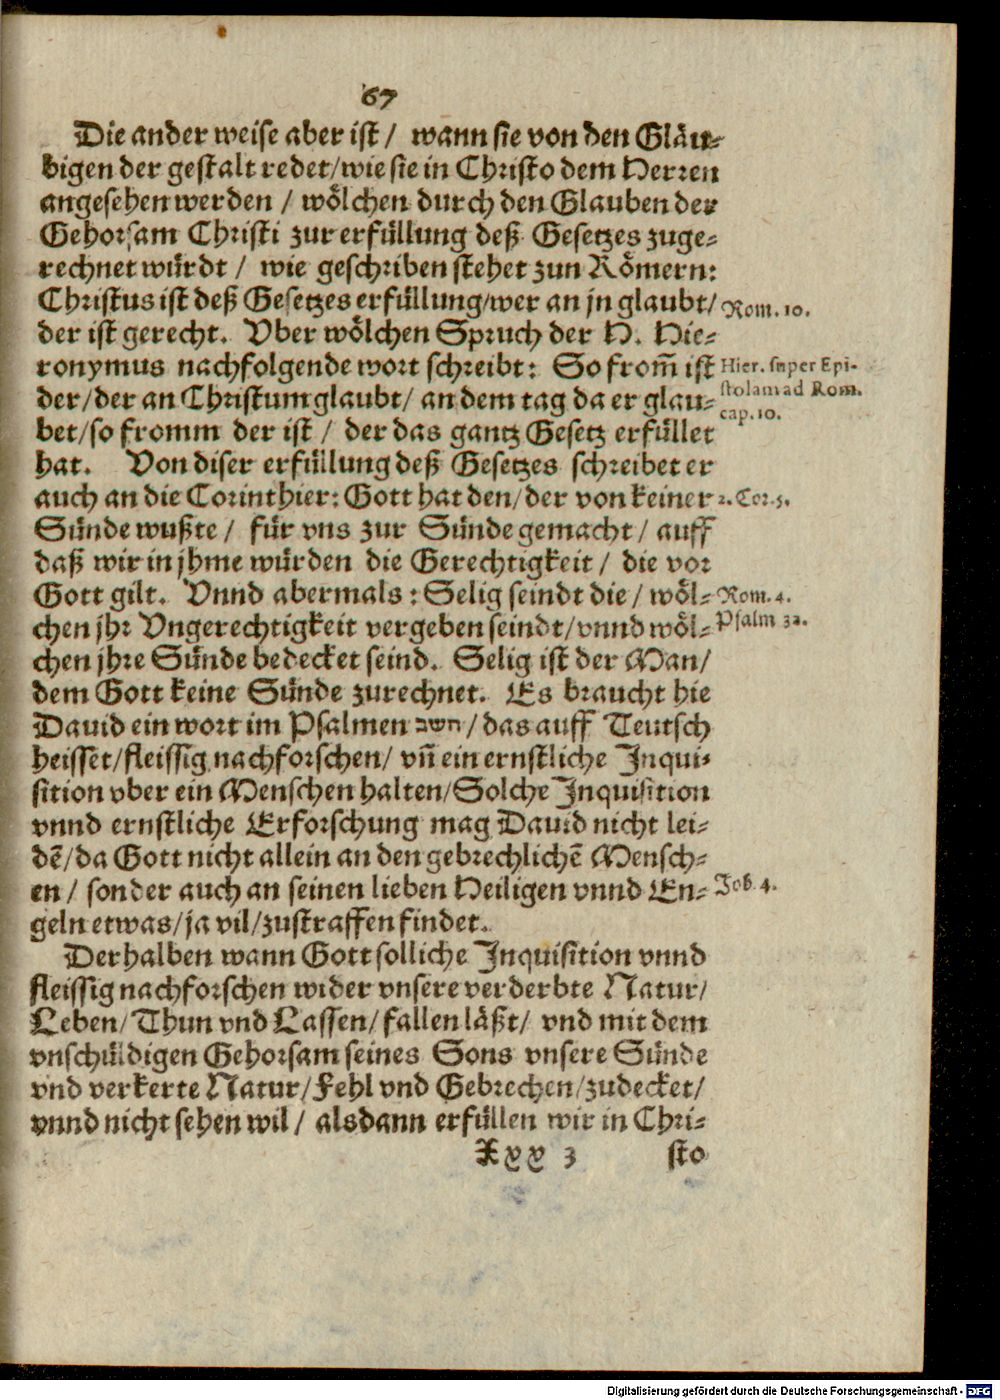 67
Die ander weise aber ist / wann sie von den Gläu-
bigen der gestalt redet/wie sie in Christo dem Herren
angesehen werden / wölchen durch den Glauben der
Gehorsam Christi zur erfüllung deß Gesetzes zuge-
rechnet würdt / wie geschriben stehet zun Römern:
Christus ist deß Gesetzes erfüllung/wer an jn glaubt/
Rom. 10.
der ist gerecht. Vber wölchen Spruch der H. Hie-
ronymus nachfolgende wort schreibt: So from̄ ist
Hier. super Epi-
der/der an Christum glaubt/ an dem tag da er glau-
stolam ad Rom.
cap. 10.
bet/so fromm der ist / der das gantz Gesetz erfüllet
hat. Von diser erfüllung deß Gesetzes schreibet er
auch an die Corinthier: Gott hat den/der von keiner
2. Cor. 5.
Sünde wußte / für vns zur Sünde gemacht / auff
daß wir in jhme würden die Gerechtigkeit / die vor
Gott gilt. Vnnd abermals: Selig seindt die / wöl-
Rom. 4.
chen jhr Vngerechtigkeit vergeben seindt/vnnd wöl-
Psalm 32.
chen jhre Sünde bedecket seind. Selig ist der Man/
dem Gott keine Sünde zurechnet. Es braucht hie
Dauid ein wort im Psalmen חשב / das auff Teutsch
heisset/fleissig nachforschen/ vn̄ ein ernstliche Inqui-
sition vber ein Menschen halten/Solche Inquisition
vnnd ernstliche Erforschung mag Dauid nicht lei-
dē/da Gott nicht allein an den gebrechlichē Mensch-
en / sonder auch an seinen lieben Heiligen vnnd En-
Job. 4.
geln etwas/ja vil/zustraffen findet.
Derhalben wann Gott solliche Inquisition vnnd
fleissig nachforschen wider vnsere verderbte Natur/
Leben/Thun vnd Lassen/fallen läßt/ vnd mit dem
vnschüldigen Gehorsam seines Sons vnsere Sünde
vnd verkerte Natur/Fehl vnd Gebrechen/zudecket/
vnnd nicht sehen wil / alsdann erfüllen wir in Chri-
Xxx 3 sto
Digitalisierung gefördert durch die Deutsche Forschungsgemeinschaft - DFG